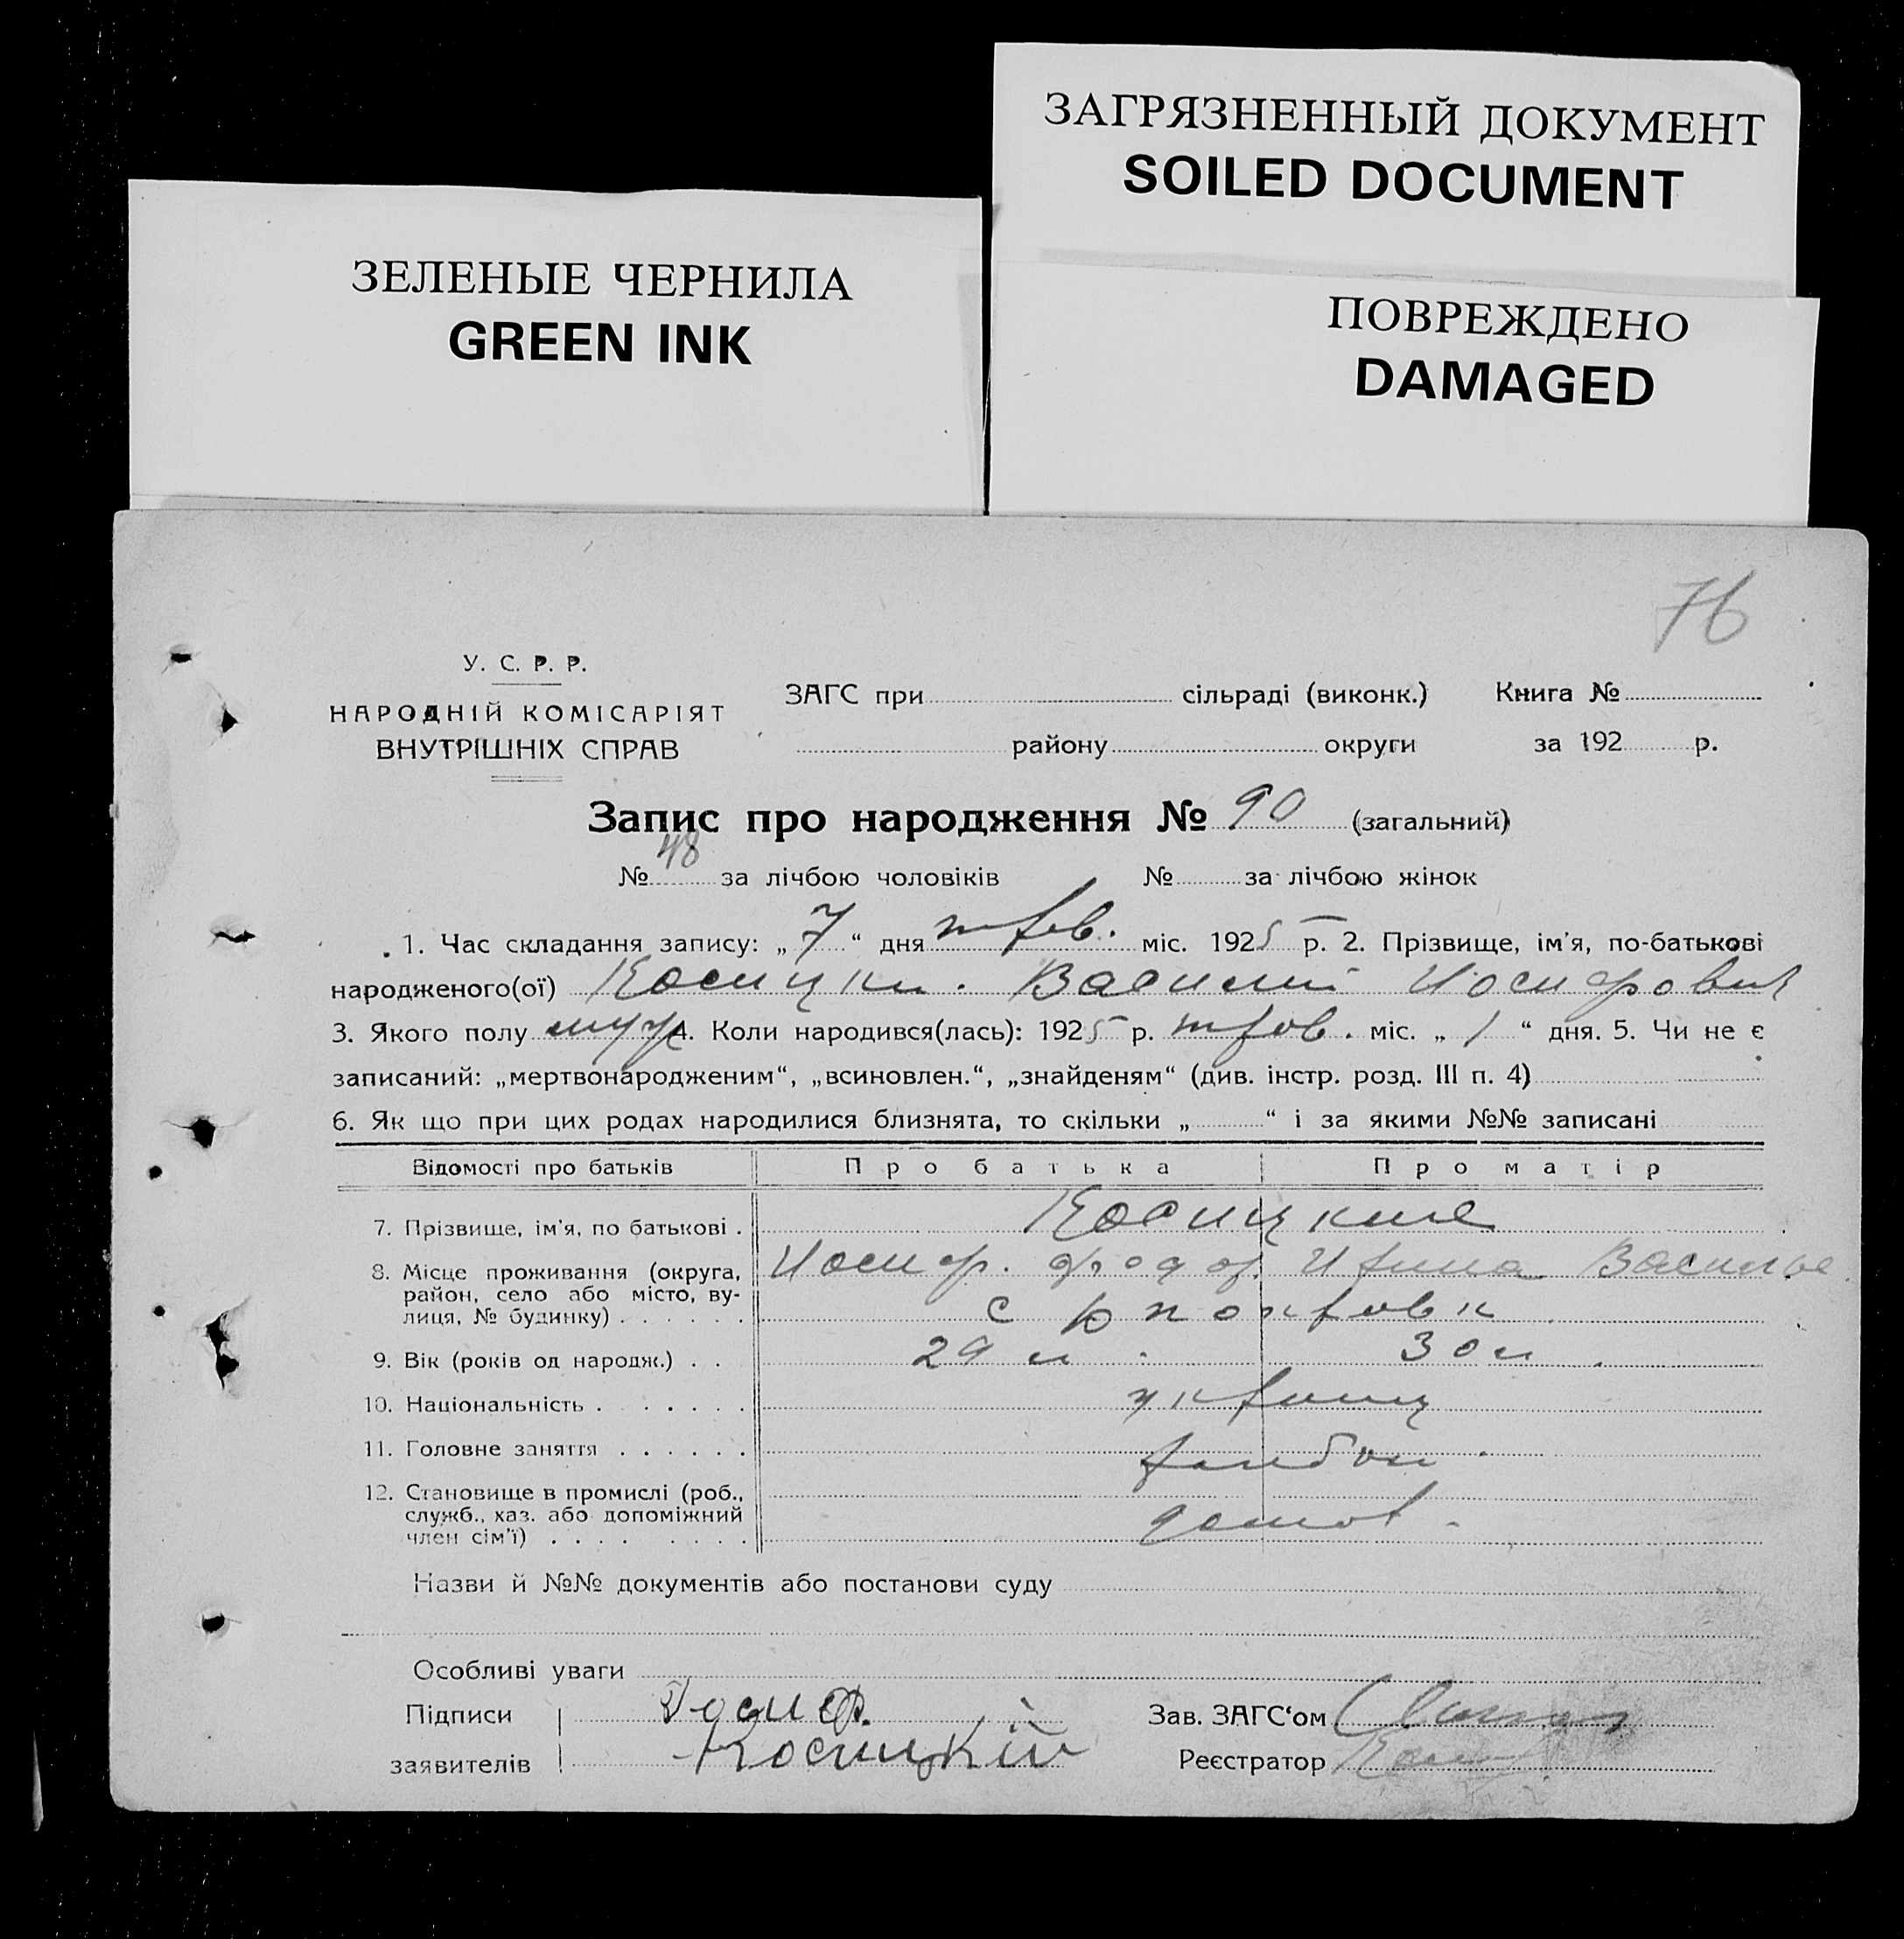 ЗАГРЯЗНЕННЫЙ ДОКУМЕНТ
SOILED DOCUMENT
ЗЕЛЕНЫЕ ЧЕРНИЛА
GREEN INK
ПОВРЕЖДЕНО
DAMAGED
76
У. С. Р. Р.
НАРОДНІЙ КОМІСАРІЯТ
ВНУТРІШНІХ СПРАВ
ЗАГС при сільраді (виконк.) Книга №
району округи за 192 р.
Запис про народження № 90 (загальний)
№ 48 за лічбою чоловіків № за лічбою жінок
1. Час складання запису: „ 7 “ дня міс. 1925 р. 2. Прізвище, ім'я, по-батькові
народженого(ої) Косицки. Василий Иосифович
3. Якого полу муж 4. Коли народився(лась): 1925 р. міс. „ 1 “ дня. 5. Чи не є
записаний: „мертвонародженим“, „всиновлен.“, „знайденям“ (див. інстр. розд. III п. 4)
6. Як що при цих родах народилися близнята, то скільки „ “ і за якими №№ записані
Відомості про батьків Про батька Про матір
7. Прізвище, ім'я, по батькові . Косицкие
8. Місце проживання (округа, Иосиф. Ирина Василье
район, село або місто, ву-
лиця, № будинку) . . . . . . с
9. Вік (років од народж.) . . 29 л. 30 л.
10. Національність . . . . . .
11. Головне заняття . . . . . .
12. Становище в промислі (роб.,
служб., хаз. або допоміжний
член сім'ї) . . . . . . . .
Назви й №№ документів або постанови суду
Особливі уваги
Підписи Иосиф. Зав. ЗАГС'ом
заявителів Косицкій Реєстратор